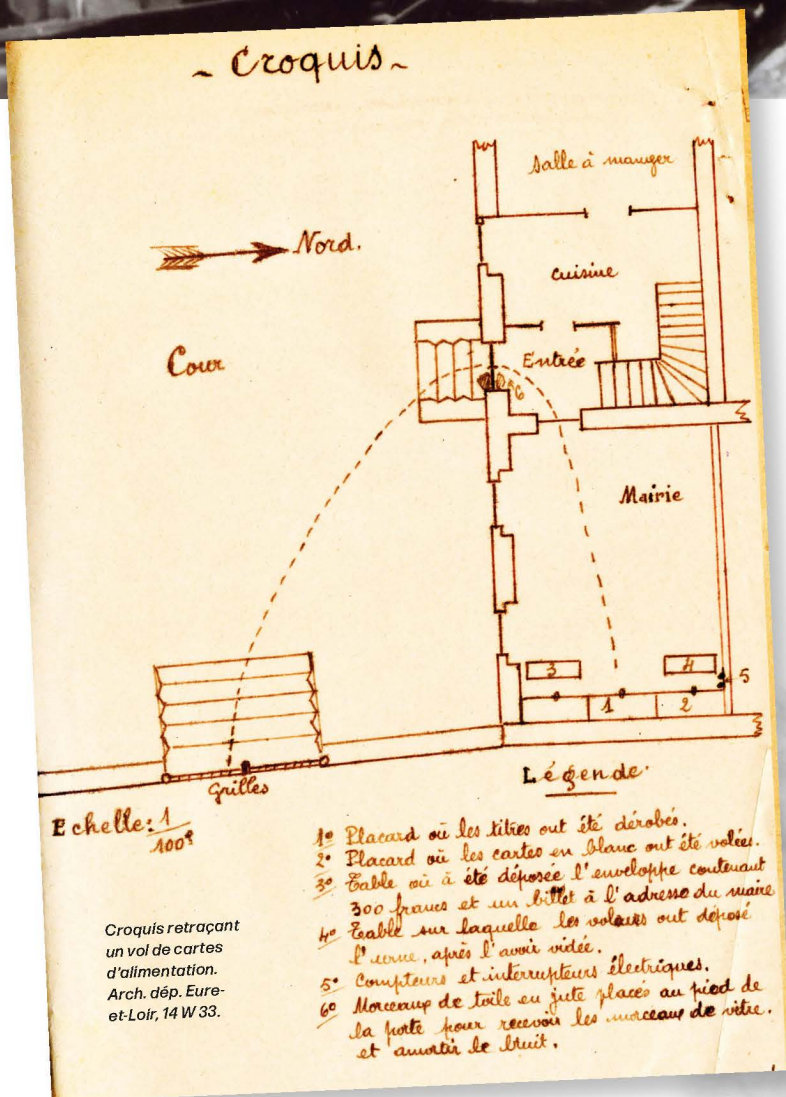 ~ Croquis ~
salle à manger
Nord.
cuisine
Cour
Entrée
6
Mairie
3
4
5
1
2
Grilles
Légende.
Echelle: 1
100e
1° Placard où les titres ont été dérobés.
2° Placard où les cartes en blanc ont été volées.
3° Table où à été déposée l'enveloppe contenant
300 francs et un billet à l'adresse du maire
4° Table sur laquelle les voleurs ont déposé
l'urne, après l'avoir vidée.
5° Compteurs et interrupteurs électriques.
6° Morceaux de toile en jute placés au pied de
la porte pour recevoir les morceaux de vitre.
et amortir le bruit.
Croquis retraçant
un vol de cartes
d'alimentation.
Arch. dép. Eure-
et-Loir, 14 W 33.